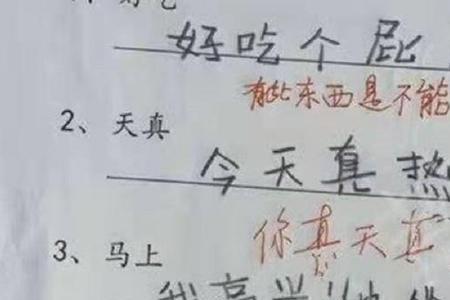 好吃个屁
有些东西是不能
2、天真
今天真热
你真天真
3、马上
我高兴